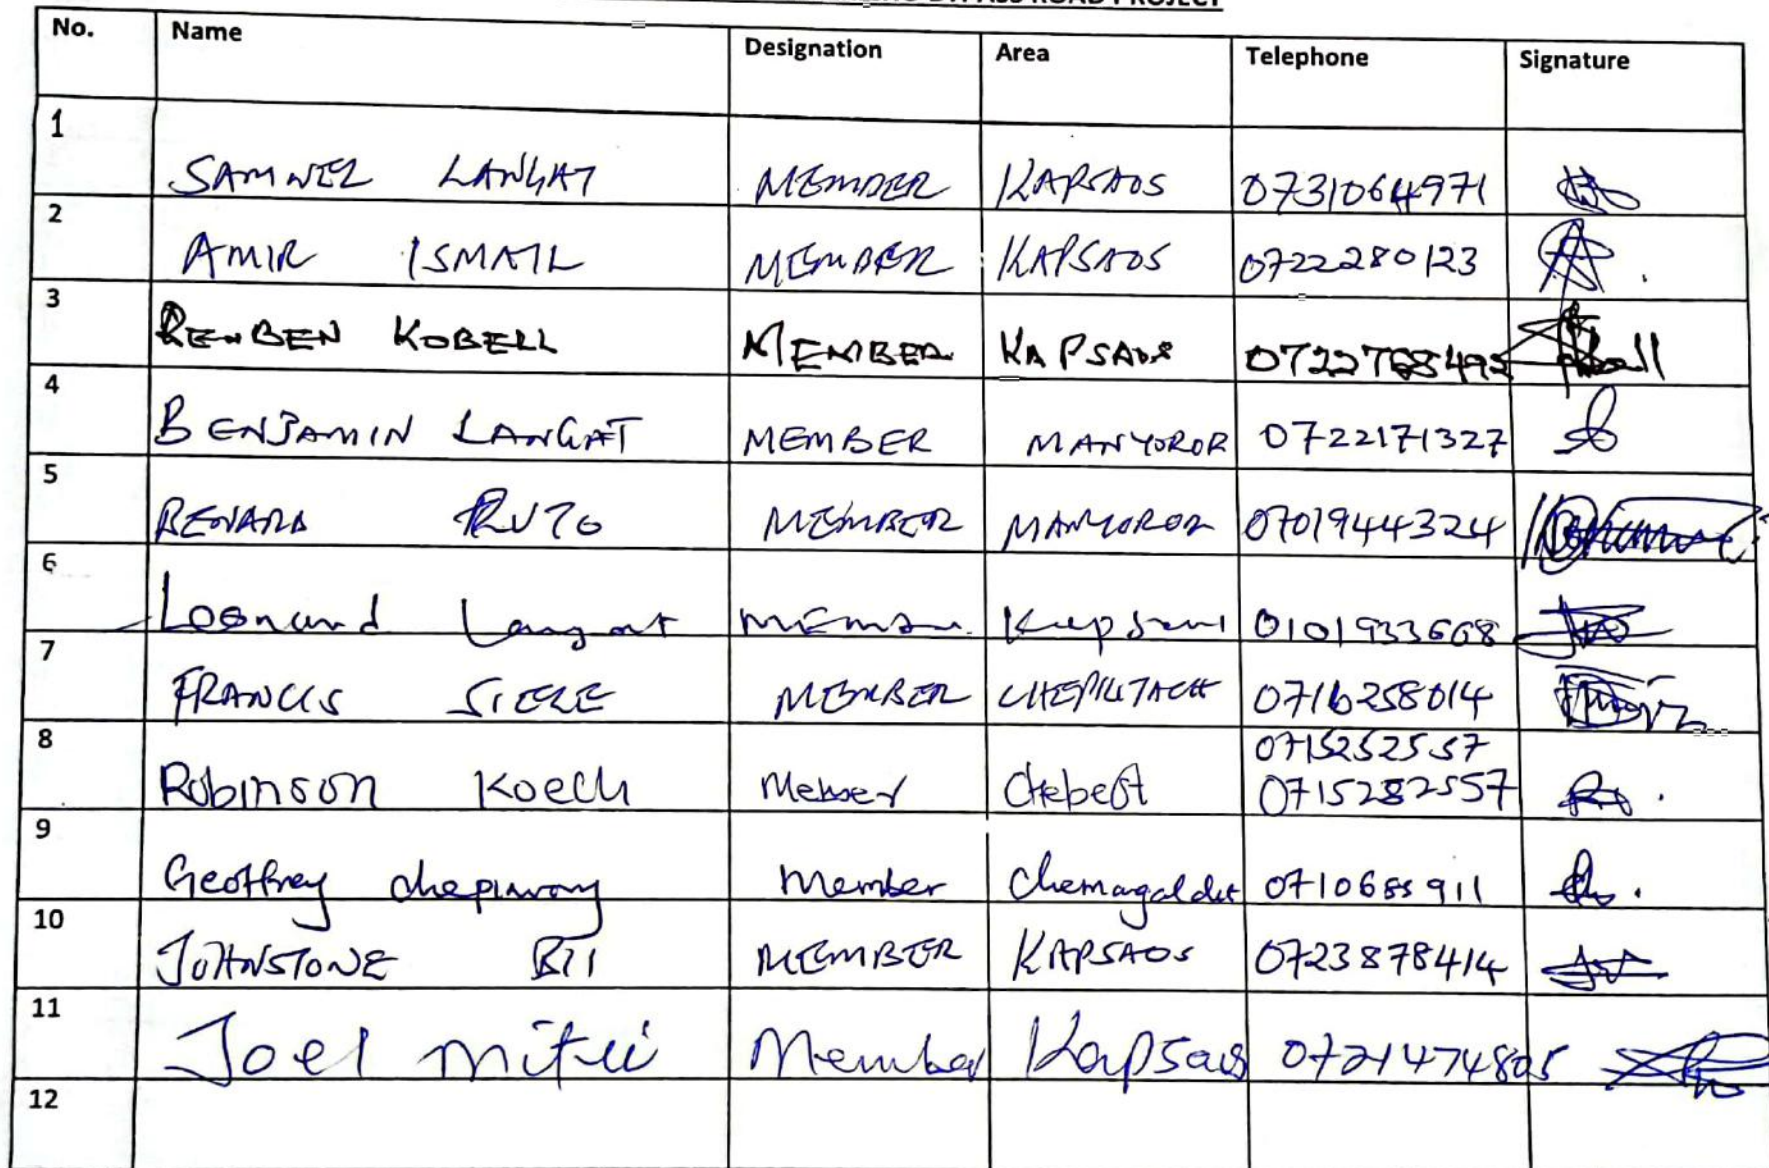 BYPASS ROAD PROJECT
No. Name Designation Area Telephone Signature
1 SAMWEL LANGAT MEMBER KAPSAOS 0731064971
2 AMIR ISMAIL MEMBER KAPSAOS 0722280123
3 REUBEN KOBELL MEMBER KAPSAOS
4 BENJAMIN LANGAT MEMBER MANYOROR 0722171327
5 BENARD RUTO MEMBER MANYOROR 0701944324
6 Leonard Langat 0101933668
7 FRANCIS SIELE MEMBER 0716258014
0715252557
8 Robinson Koech Member 0715282557
9 Geoffrey chepkwony Member Chemagaldit 0710685911
10 JOHNSTONE BII MEMBER KAPSAOS 0723878414
11 Joel mitei Member Kapsaos 0721474805
12